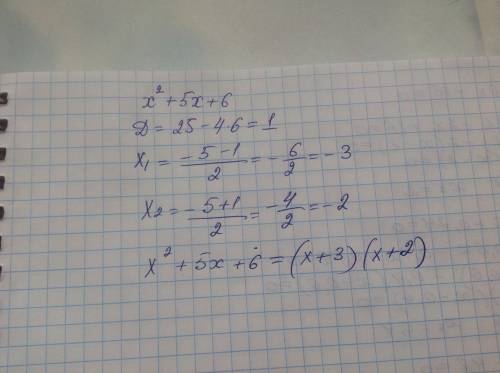 x² + 5x + 6
Д = 25 - 4·6 = 1
x₁ = (-5-1)/2 = -6/2 = -3
x₂ = (-5+1)/2 = -4/2 = -2
x² + 5x + 6 = (x+3)(x+2)